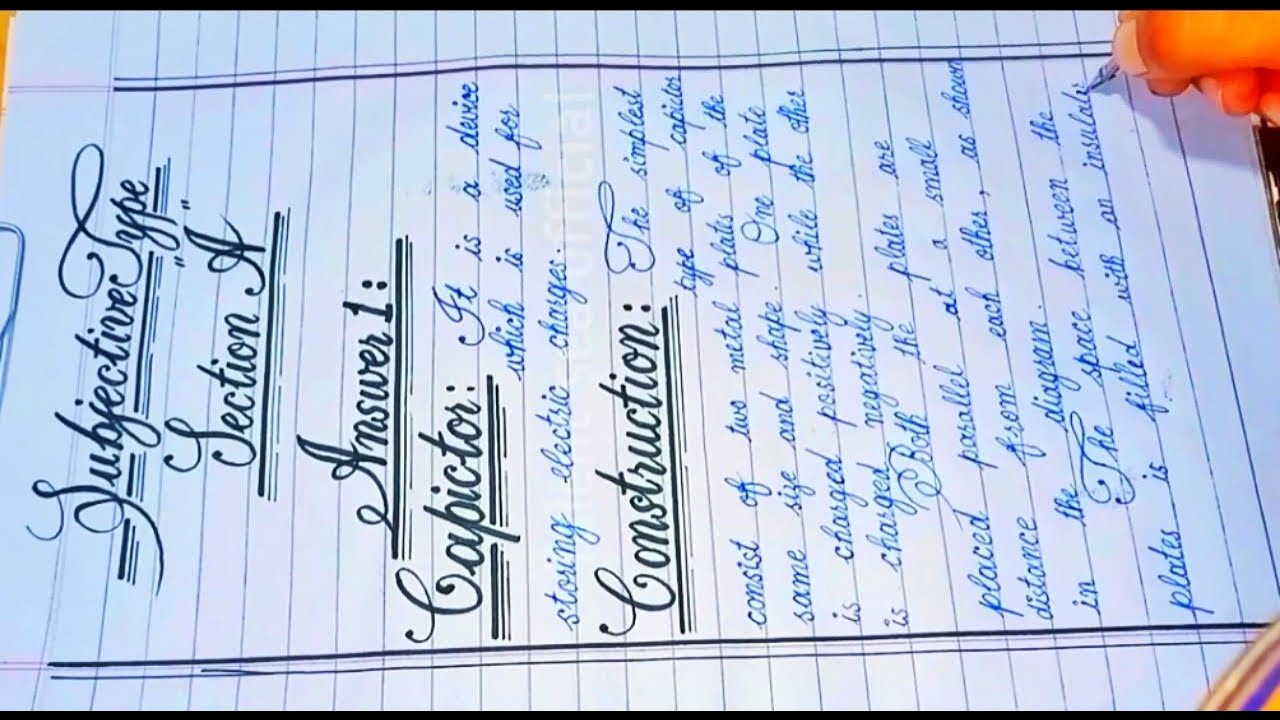 Subjective Type
"Section A"
Answer 1:
Capictor: It is a device
which is used for
storing electric charges.
Construction: The simplest
type of capicitor
consist of two metal plats of the
same size and shape. One plate
is charged positively while the other
is charged negatively.
Both the plates are
placed parallel at a small
distance from each other, as shown
in the diagram.
The space between the
plates is filled with an insulator